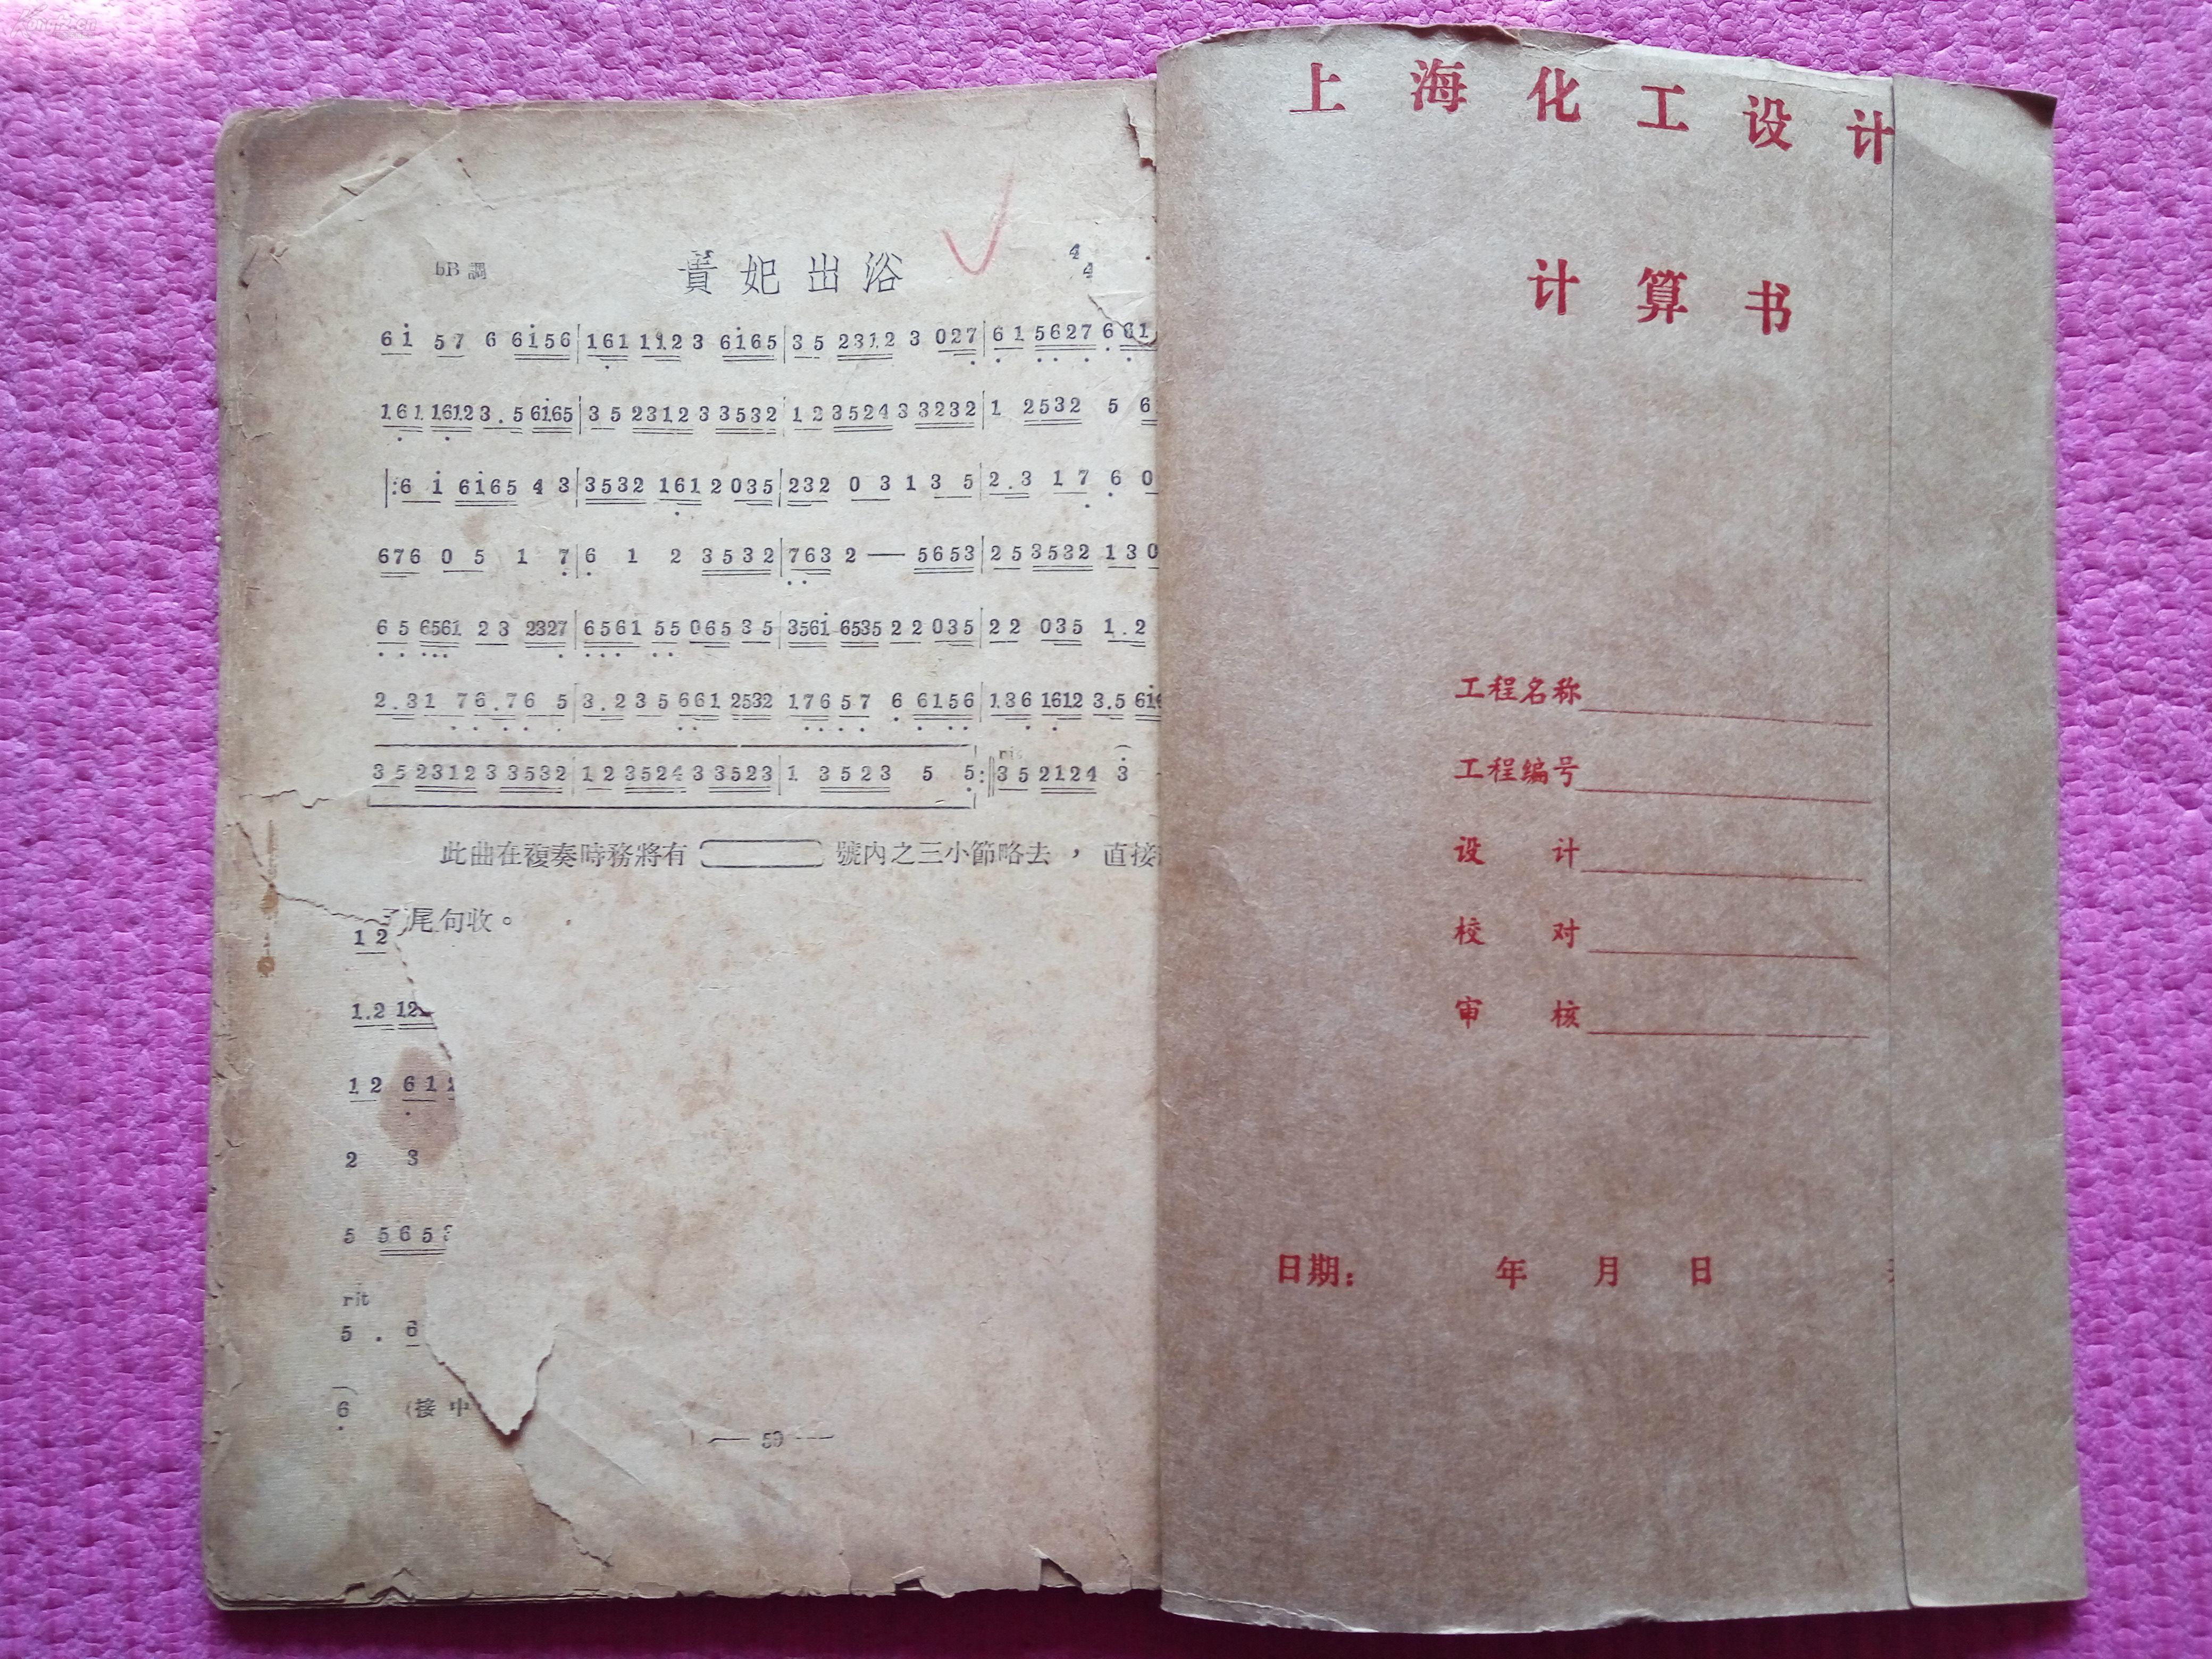 bB調 貴妃出浴 4/4
6 i 5 7 6 6 i 5 6 | 1 6 1 1 1 2 3 6 i 6 5 | 3 5 2 3 1 2 3 0 2 7 | 6 1 5 6 2 7 6 6 1
1 6 1 1 6 1 2 3 . 5 6 i 6 5 | 3 5 2 3 1 2 3 3 5 3 2 | 1 2 3 5 2 4 3 3 2 3 2 | 1 2 5 3 2 5 6
|: 6 i 6 i 6 5 4 3 | 3 5 3 2 1 6 1 2 0 3 5 | 2 3 2 0 3 1 3 5 | 2 . 3 1 7 6 0
6 7 6 0 5 1 7 | 6 1 2 3 5 3 2 | 7 6 3 2 — 5 6 5 3 | 2 5 3 5 3 2 1 3 0
6 5 6 5 6 1 2 3 2 3 2 7 | 6 5 6 1 5 5 0 6 5 3 5 | 3 5 6 i 6 5 3 5 2 2 0 3 5 | 2 2 0 3 5 1 . 2
2 . 3 1 7 6 . 7 6 5 | 3 . 2 3 5 6 6 1 2 5 3 2 | 1 7 6 5 7 6 6 1 5 6 | 1 3 6 1 6 1 2 3 . 5 6 i
3 5 2 3 1 2 3 3 5 3 2 | 1 2 3 5 2 4 3 3 5 2 3 | 1 3 5 2 3 5 5 :|| 3 5 2 1 2 4 3
此曲在複奏時務將有 號內之三小節略去，直接
尾句收。
1 2
1 . 2 1 2
1 2 6 1
2 3
5 5 6 5 3
rit
5 . 6
6 (接中
— 59 —
上海化工设计
计算书
工程名称
工程编号
设 计
校 对
审 核
日期： 年 月 日